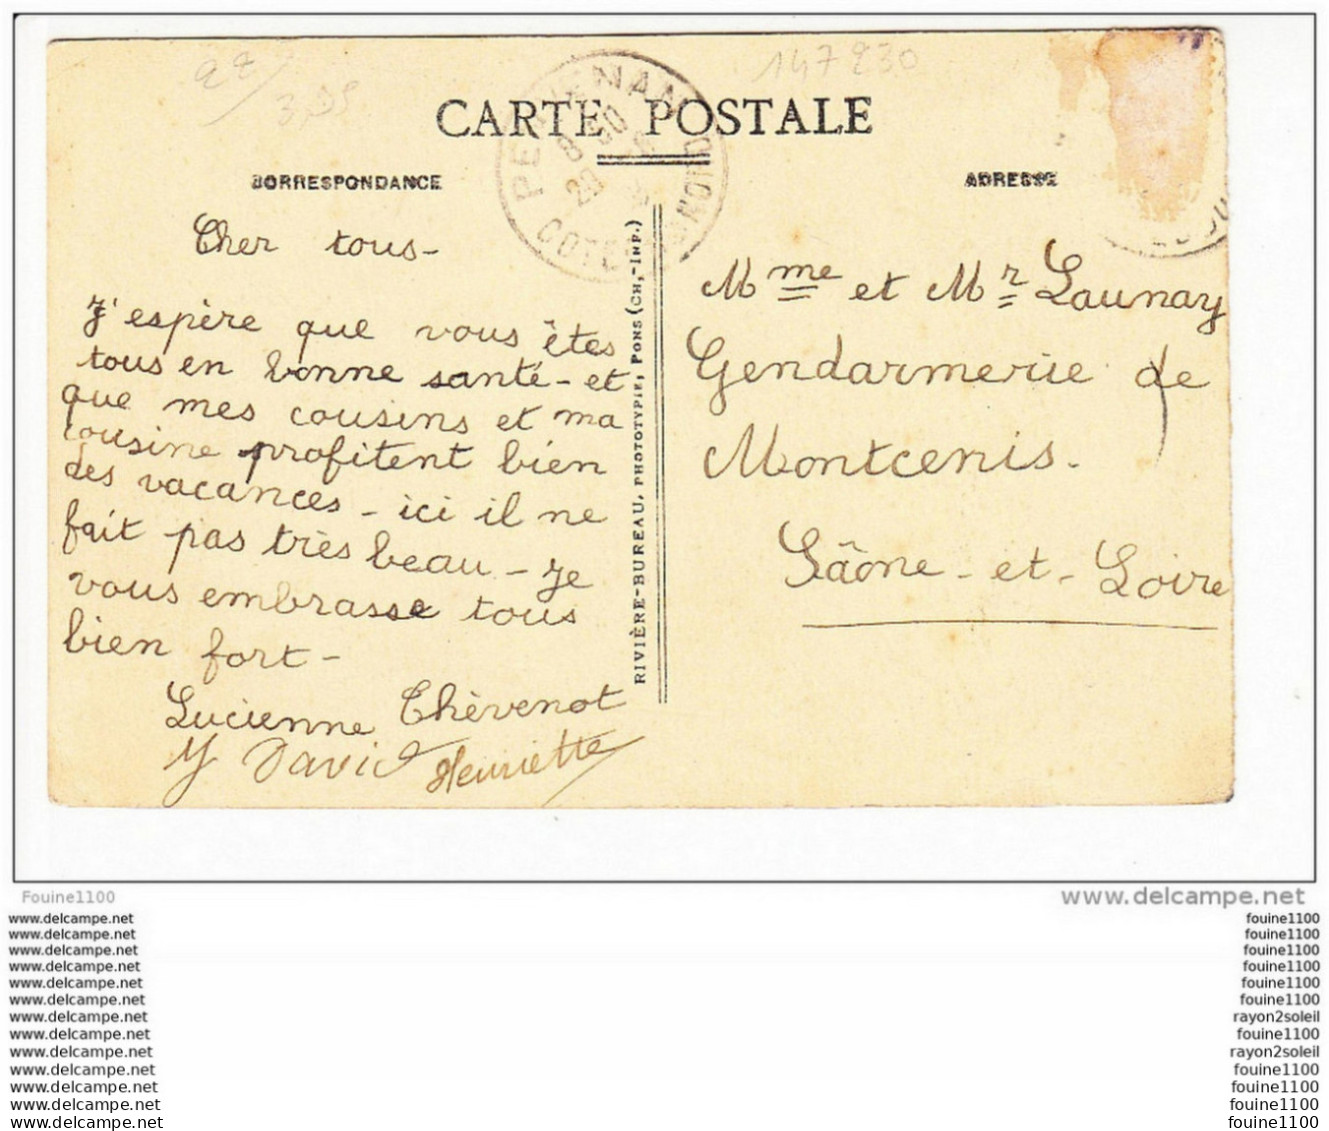 22/
3,95
147230
CARTE POSTALE
CORRESPONDANCE
ADRESSE
PERVENAN
8 30
COTES DU NORD
Cher tous -
J'espère que vous êtes
tous en bonne santé - et
que mes cousins et ma
cousine profitent bien
des vacances - ici il ne
fait pas très beau - je
vous embrasse tous
bien fort -
Lucienne Thèvenot
David Henriette
RIVIÈRE-BUREAU, PHOTOTYPIE, PONS (CH,-INF.)
Mme et Mr Launay
Gendarmerie de
Montcenis.
Saône - et - Loire
Fouine1100
www.delcampe.net
www.delcampe.net
www.delcampe.net
www.delcampe.net
www.delcampe.net
www.delcampe.net
www.delcampe.net
www.delcampe.net
www.delcampe.net
www.delcampe.net
www.delcampe.net
www.delcampe.net
www.delcampe.net
www.delcampe.net
fouine1100
fouine1100
fouine1100
fouine1100
fouine1100
fouine1100
rayon2soleil
fouine1100
rayon2soleil
fouine1100
fouine1100
fouine1100
fouine1100